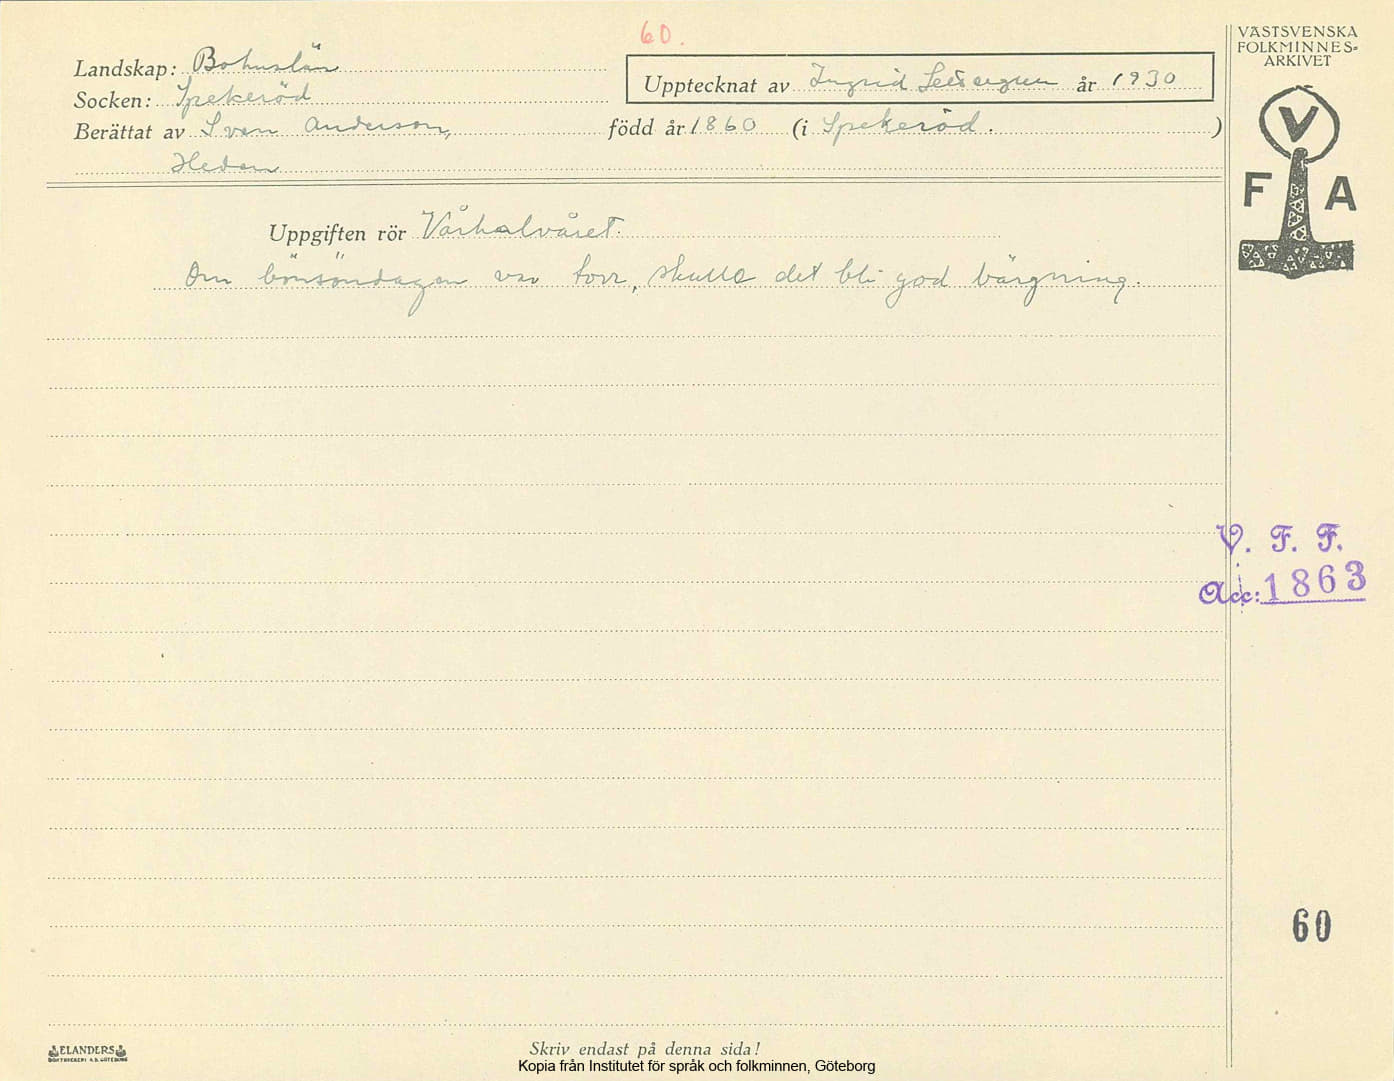 60.
Landskap: Bohuslän
Socken: Spekeröd
Upptecknat av Ingrid år 1930
Berättat av Sven Anderson, född år 1860 (i Spekeröd.)
Hedan
Uppgiften rör Vårhalvåret.
Om bönsöndagen var torr, skulle det bli god bärgning.
VÄSTSVENSKA
FOLKMINNES-
ARKIVET
V
F A
V. F. F.
Acc: 1863
60
ELANDERS
BOKTRYCKERI A.B. GÖTEBORG
Skriv endast på denna sida!
Kopia från Institutet för språk och folkminnen, Göteborg